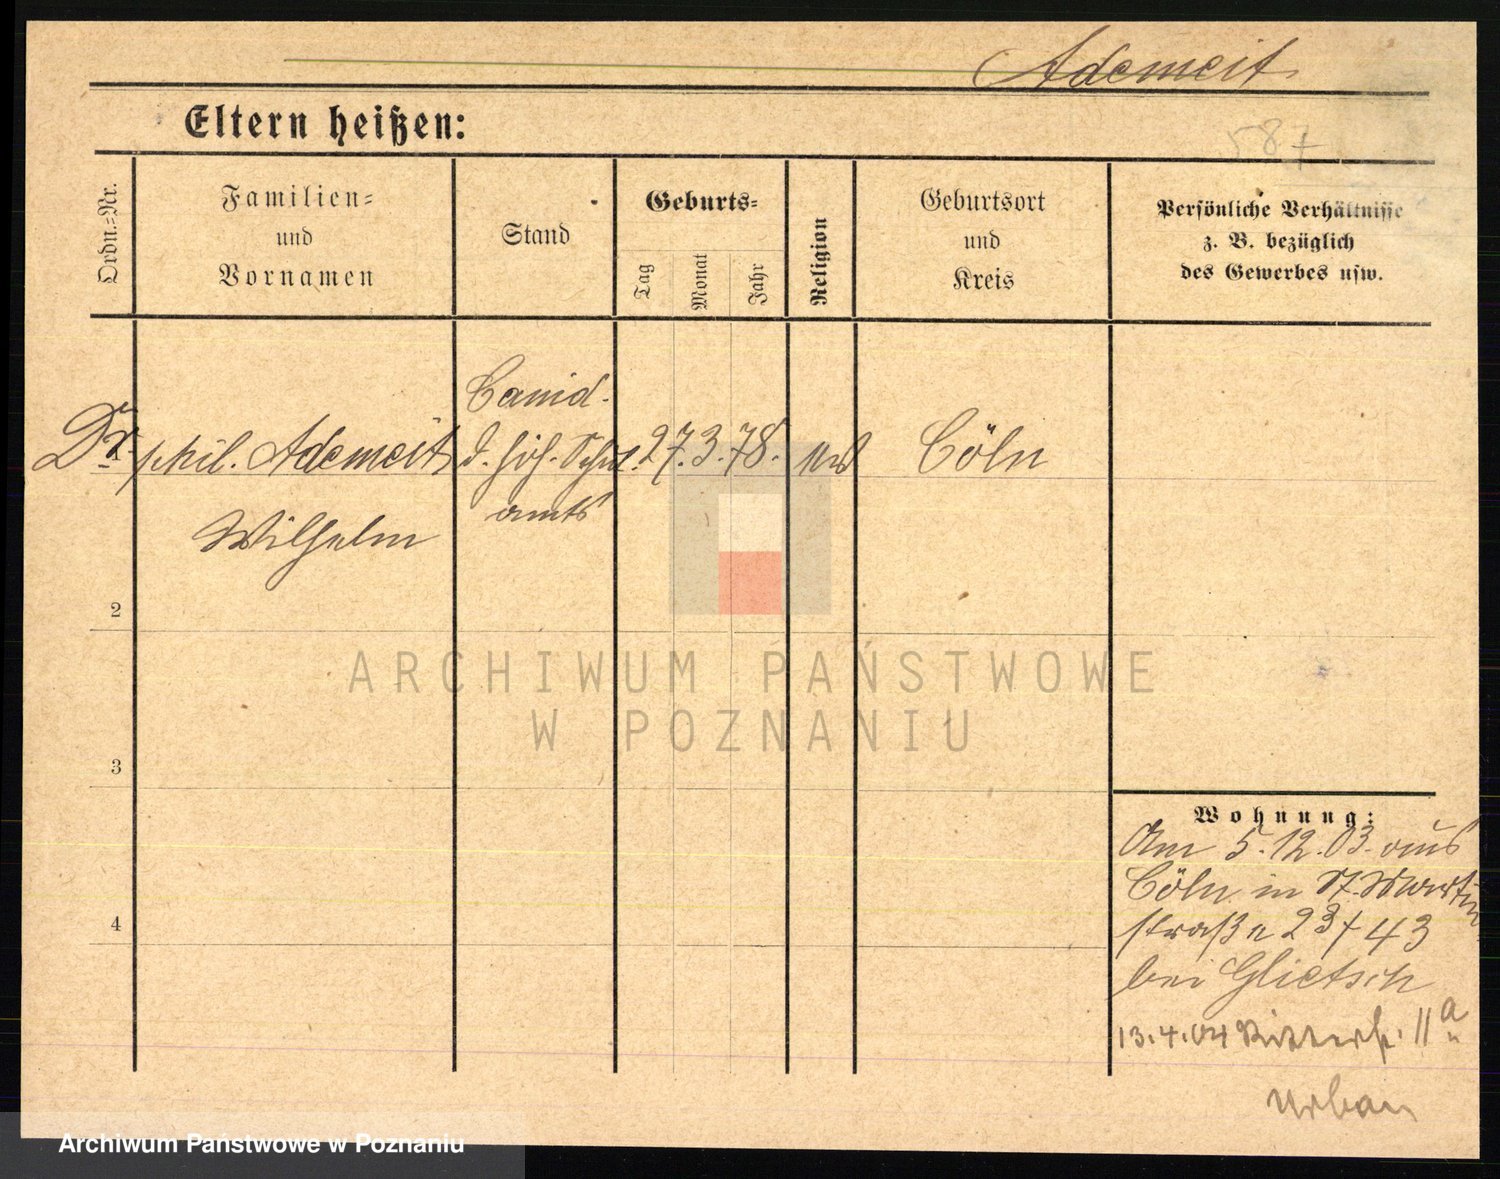 Ademeit
Eltern heißen:
587
Ordn.=Nr.
Familien=
und
Vornamen
Stand
Geburts=
Tag
Monat
Jahr
Religion
Geburtsort
und
Kreis
Persönliche Verhältnisse
z. B. bezüglich
des Gewerbes usw.
Cand.
Dr. phil. Ademeit d. höh. Schul 27.3.78. Cöln
amts
Wilhelm
2
3
4
Wohnung:
Am 5.12.03. aus
Cöln in St. Martin
straße 23 / 43
bei Glietsch
13.4.04 Ritterst. 11a
Urban
ARCHIWUM PAŃSTWOWE
W POZNANIU
Archiwum Państwowe w Poznaniu